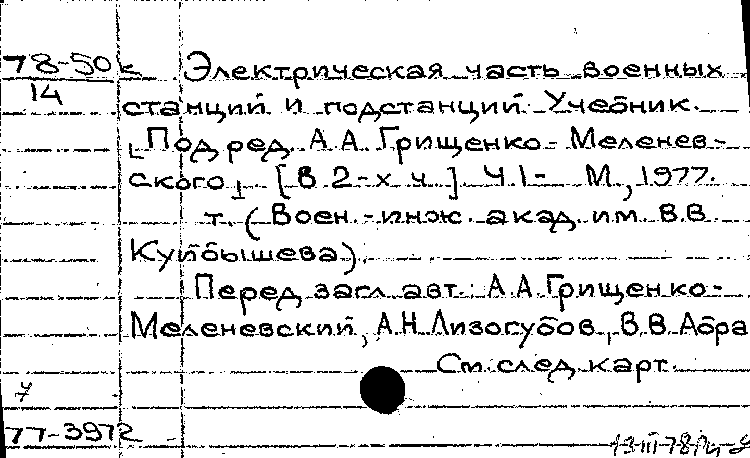 78-50к Электрическая часть военных
14 станций и подстанций. Учебник.
[Под ред. А.А. Грищенко-Меленев-
ского] [В 2-х ч.] Ч.1- М., 1977.
т. (Воен.-инж. акад. им. В.В.
Куйбышева).
Перед загл. авт.: А.А. Грищенко-
Меленевский, А.Н. Лизогубов, В.В. Абра
См. след. карт.
7
77-3972
13 III-78